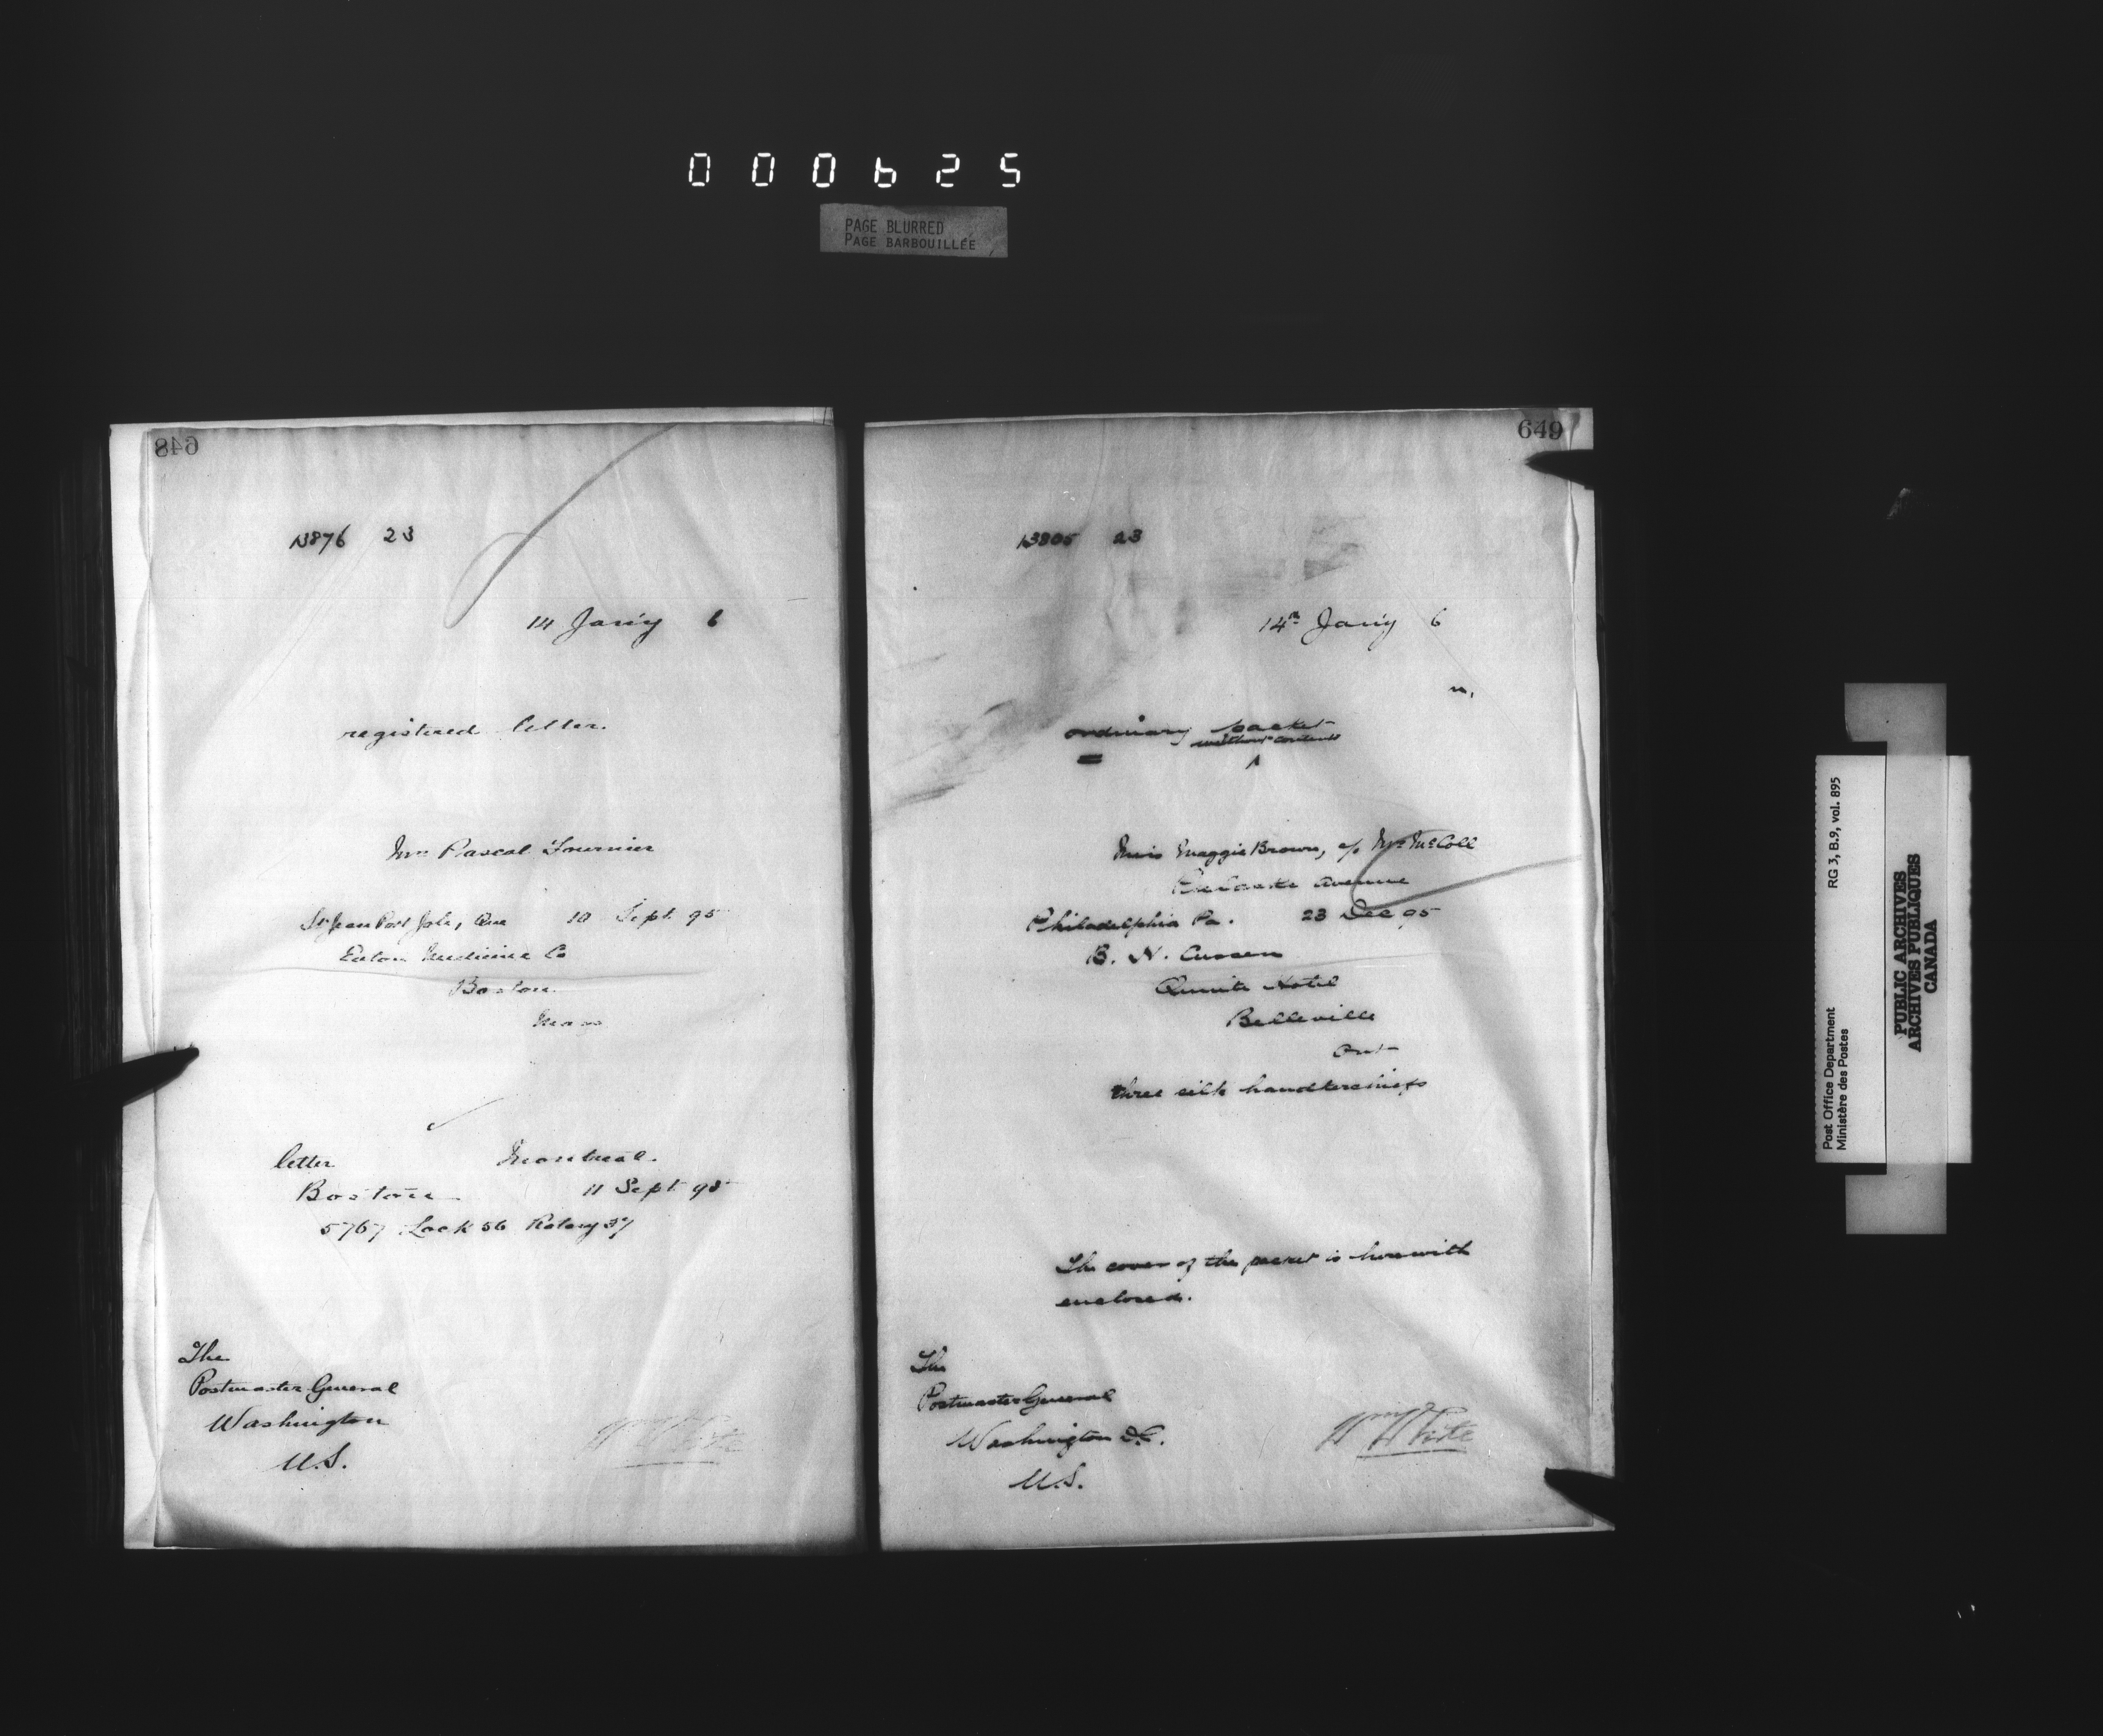 000625
PAGE BLURRED
PAGE BARBOUILLÉE
648
13876 23
14 Jan'y 6
registered letter.
Mrs Pascal Fournier
St Jean Port Joli, Que 10 Sept 95
Medicine Co
Boston
Mass
letter Montreal.
Boston 11 Sept 95
5767 Lock 56 Rotary 37
The
Postmaster General
Washington
U.S.
Wm White
649
13805 23
14th Jan'y 6
n,
ordinary packet
without contents
Miss Maggie Brown, c/o McColl
Avenue
Philadelphia Pa. 23 Dec 95
B. N. Cussen
Quinte Hotel
Belleville
Ont
three silk handkerchiefs
The cover of the packet is herewith
enclosed.
The
Postmaster General
Washington D.C.
U.S.
Wm White
Post Office Department
Ministère des Postes
RG 3, B.9, vol. 895
PUBLIC ARCHIVES
ARCHIVES PUBLIQUES
CANADA